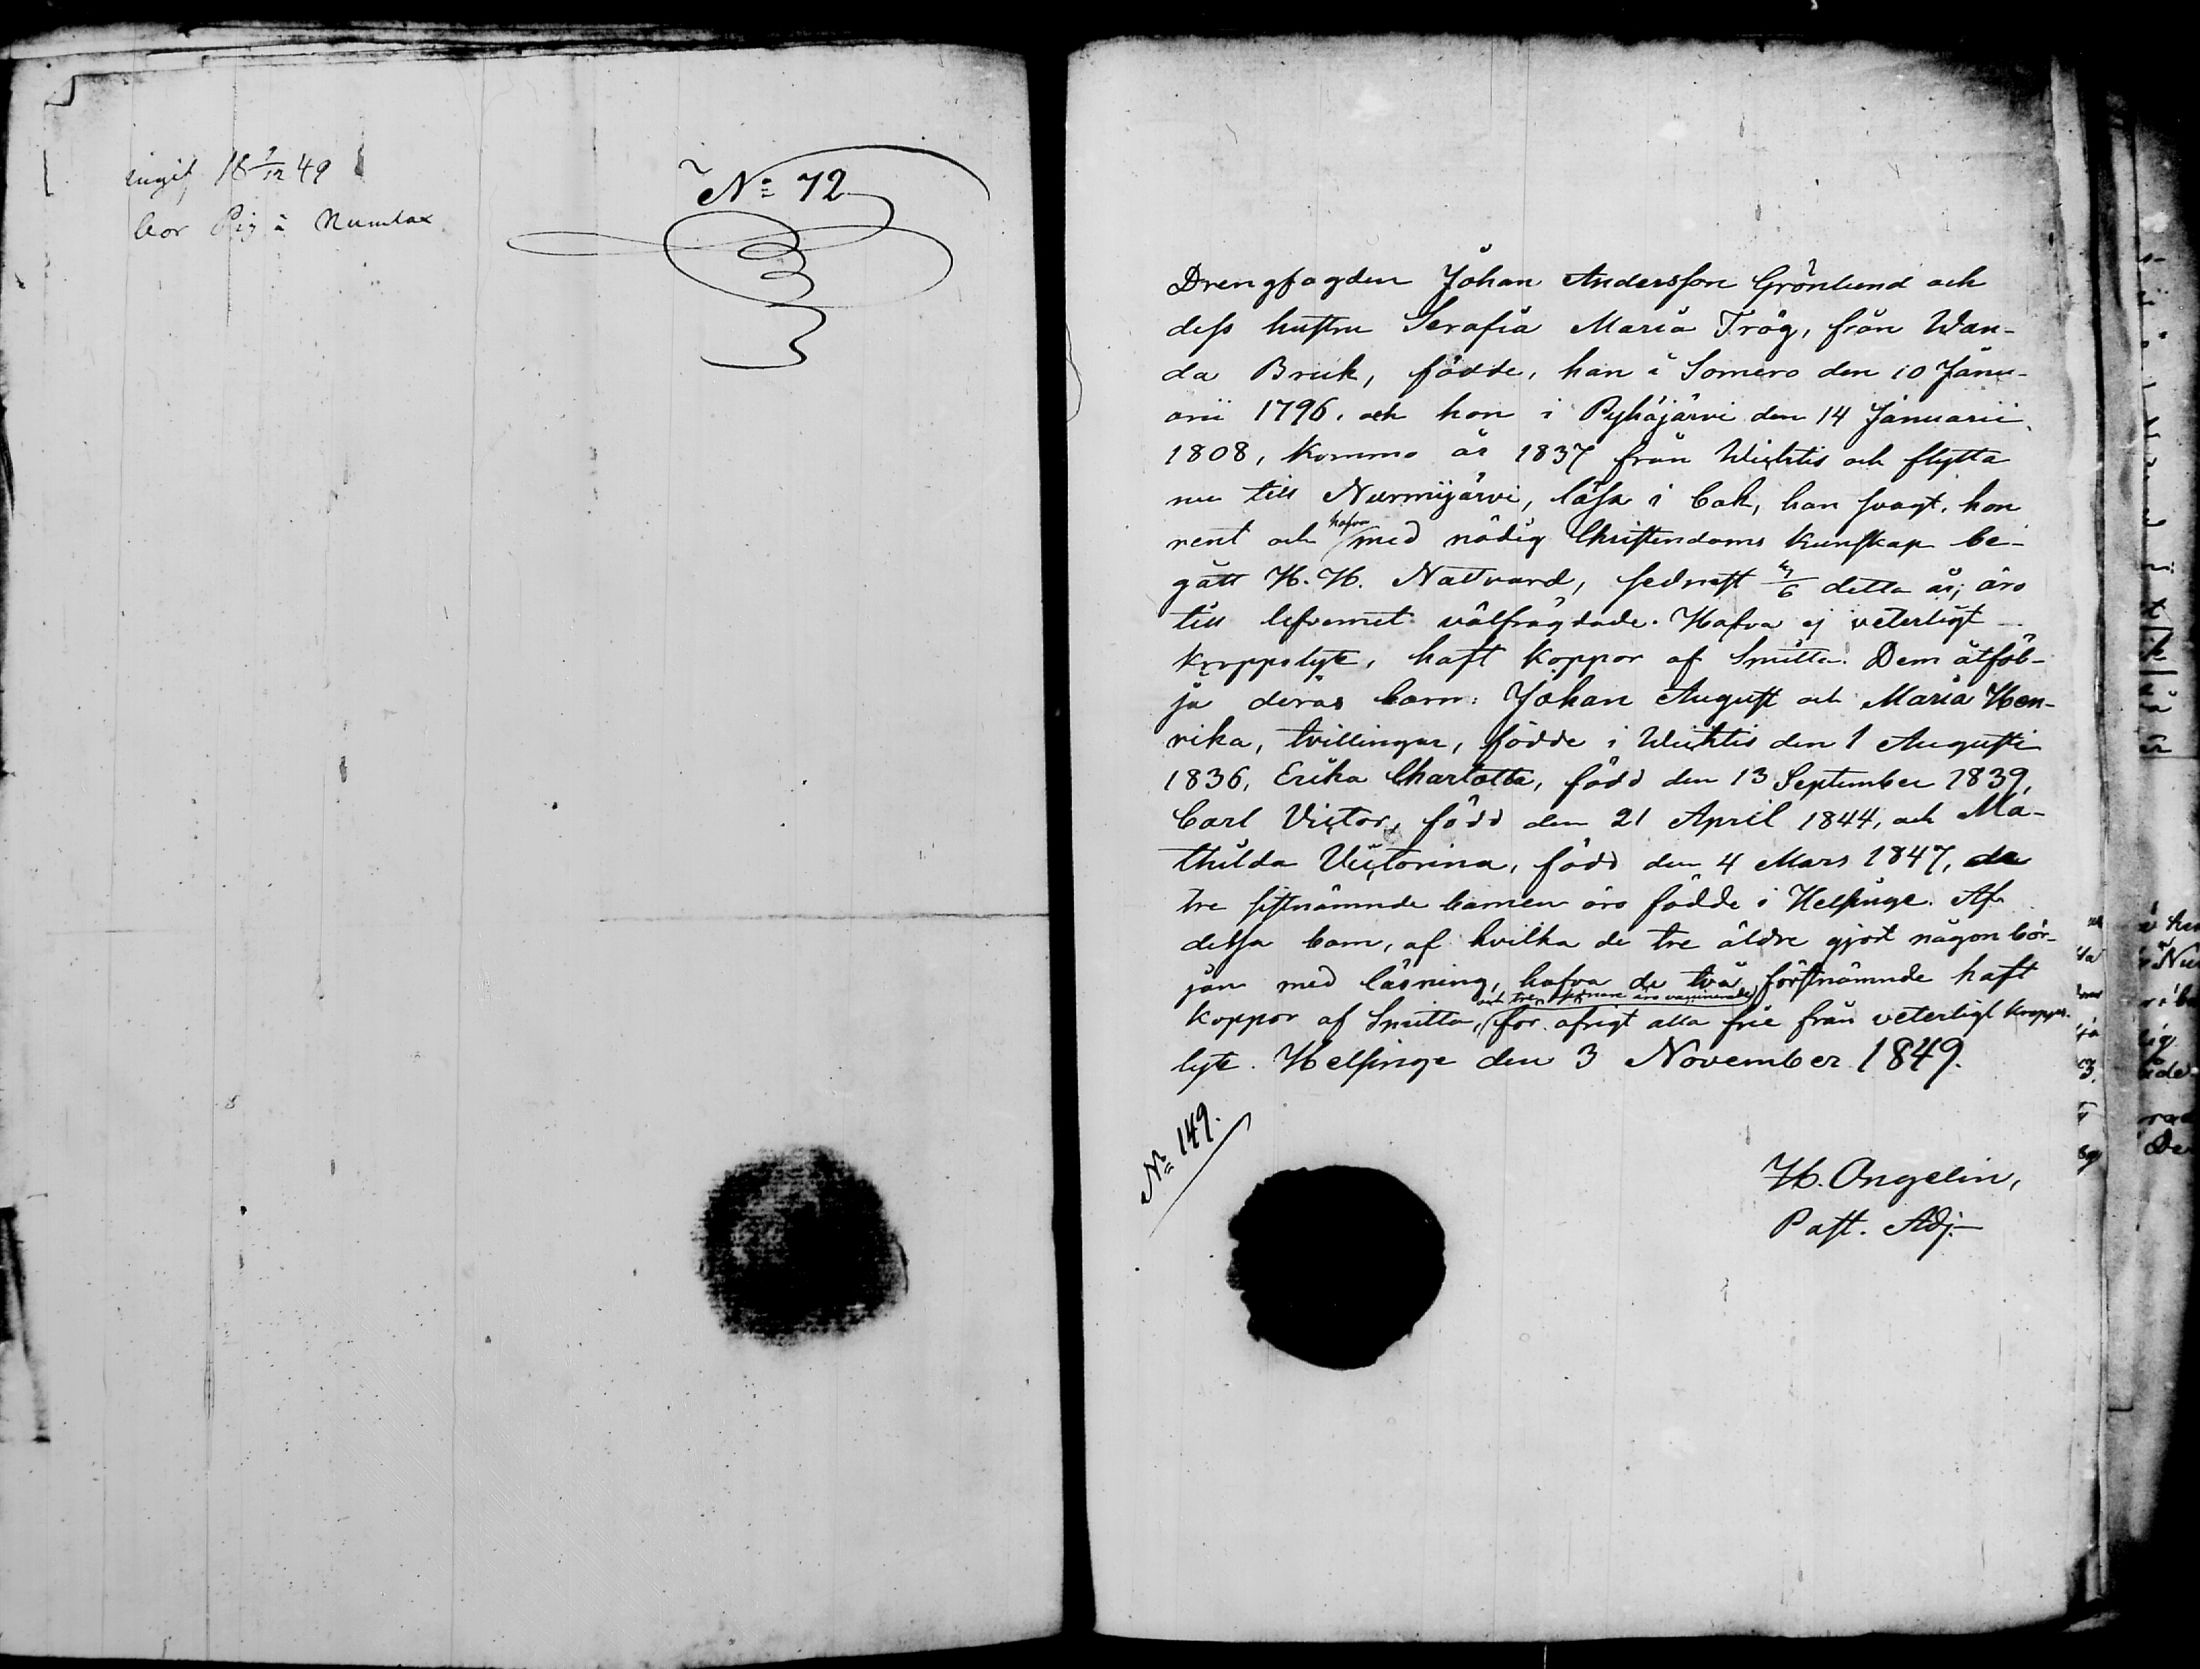 ingif 18 7/12 49
bor på Numlax
No 72
Drengfogden Johan Andersson Grönlund och
dess hustru Serafia Maria Tråg, från Wan-
da Bruk, födde, han i Somero den 10 Janu-
arii 1796, och hon i Pyhäjärvi den 14 Januarii
1808, kommo år 1837 från Wichtis och flytta
nu till Nurmijärvi, läsa i bok, han svagt, hon
rent och hafva med nödig Christendoms kunskap be-
gått H. H. Nattvard, sednast /6 detta år; äro
till lefvernet välfrägdade. Hafva ej veterligt
kroppslyte, haft koppor af Smitta. Dem åtföl-
ja deras barn: Johan August och Maria Hen-
rika, tvillingar, födde i Wichtis den 1 Augusti
1836, Erika Charlotta, född den 13 September 1839,
Carl Victor, född den 21 April 1844, och Ma-
thilda Victorina, född den 4 Mars 1847, de
tre sistnämnde barnen äro födde i Helsinge. Af
dessa barn, af hvilka de tre äldre gjort någon bör-
jan med läsning, hafva de två förstnämnde haft
koppor af Smitta, och tre sednare äro vaccinerade, för öfrigt alla frie från veterligt kropps-
lyte. Helsinge den 3 November 1849.
No 149.
H. Ongelin,
Past. Adj.